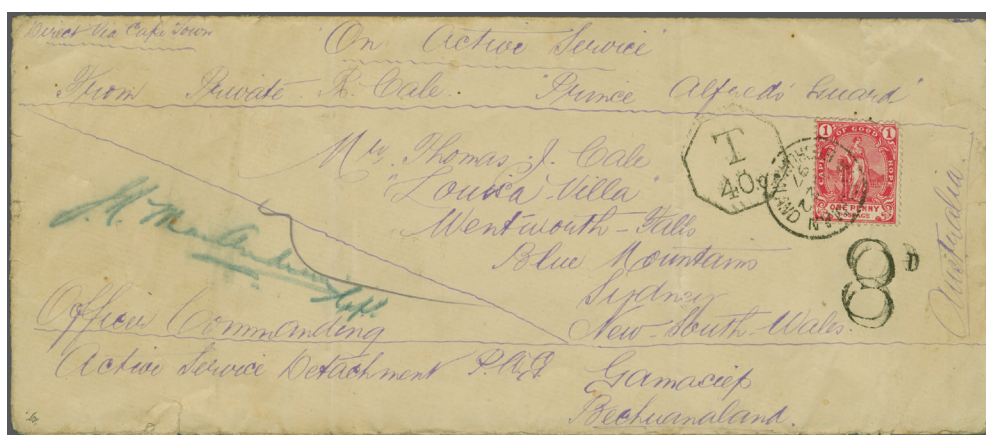 Direct Via Cape Town
"On Active Service"
From Private T. Cale. "Prince Alfreds' Guard"
Mrs. Thomas. J. Cale
"Louisa Villa"
Wentworth-Falls
Blue Mountains
Sydney
New-South-Wales.
Australia
T
40c
CAPE OF GOOD HOPE
1 1
ONE PENNY
POSTAGE
8D
Officer Commanding
Active Service Detachment P.A.G.
Gamasiep
Bechuanaland.